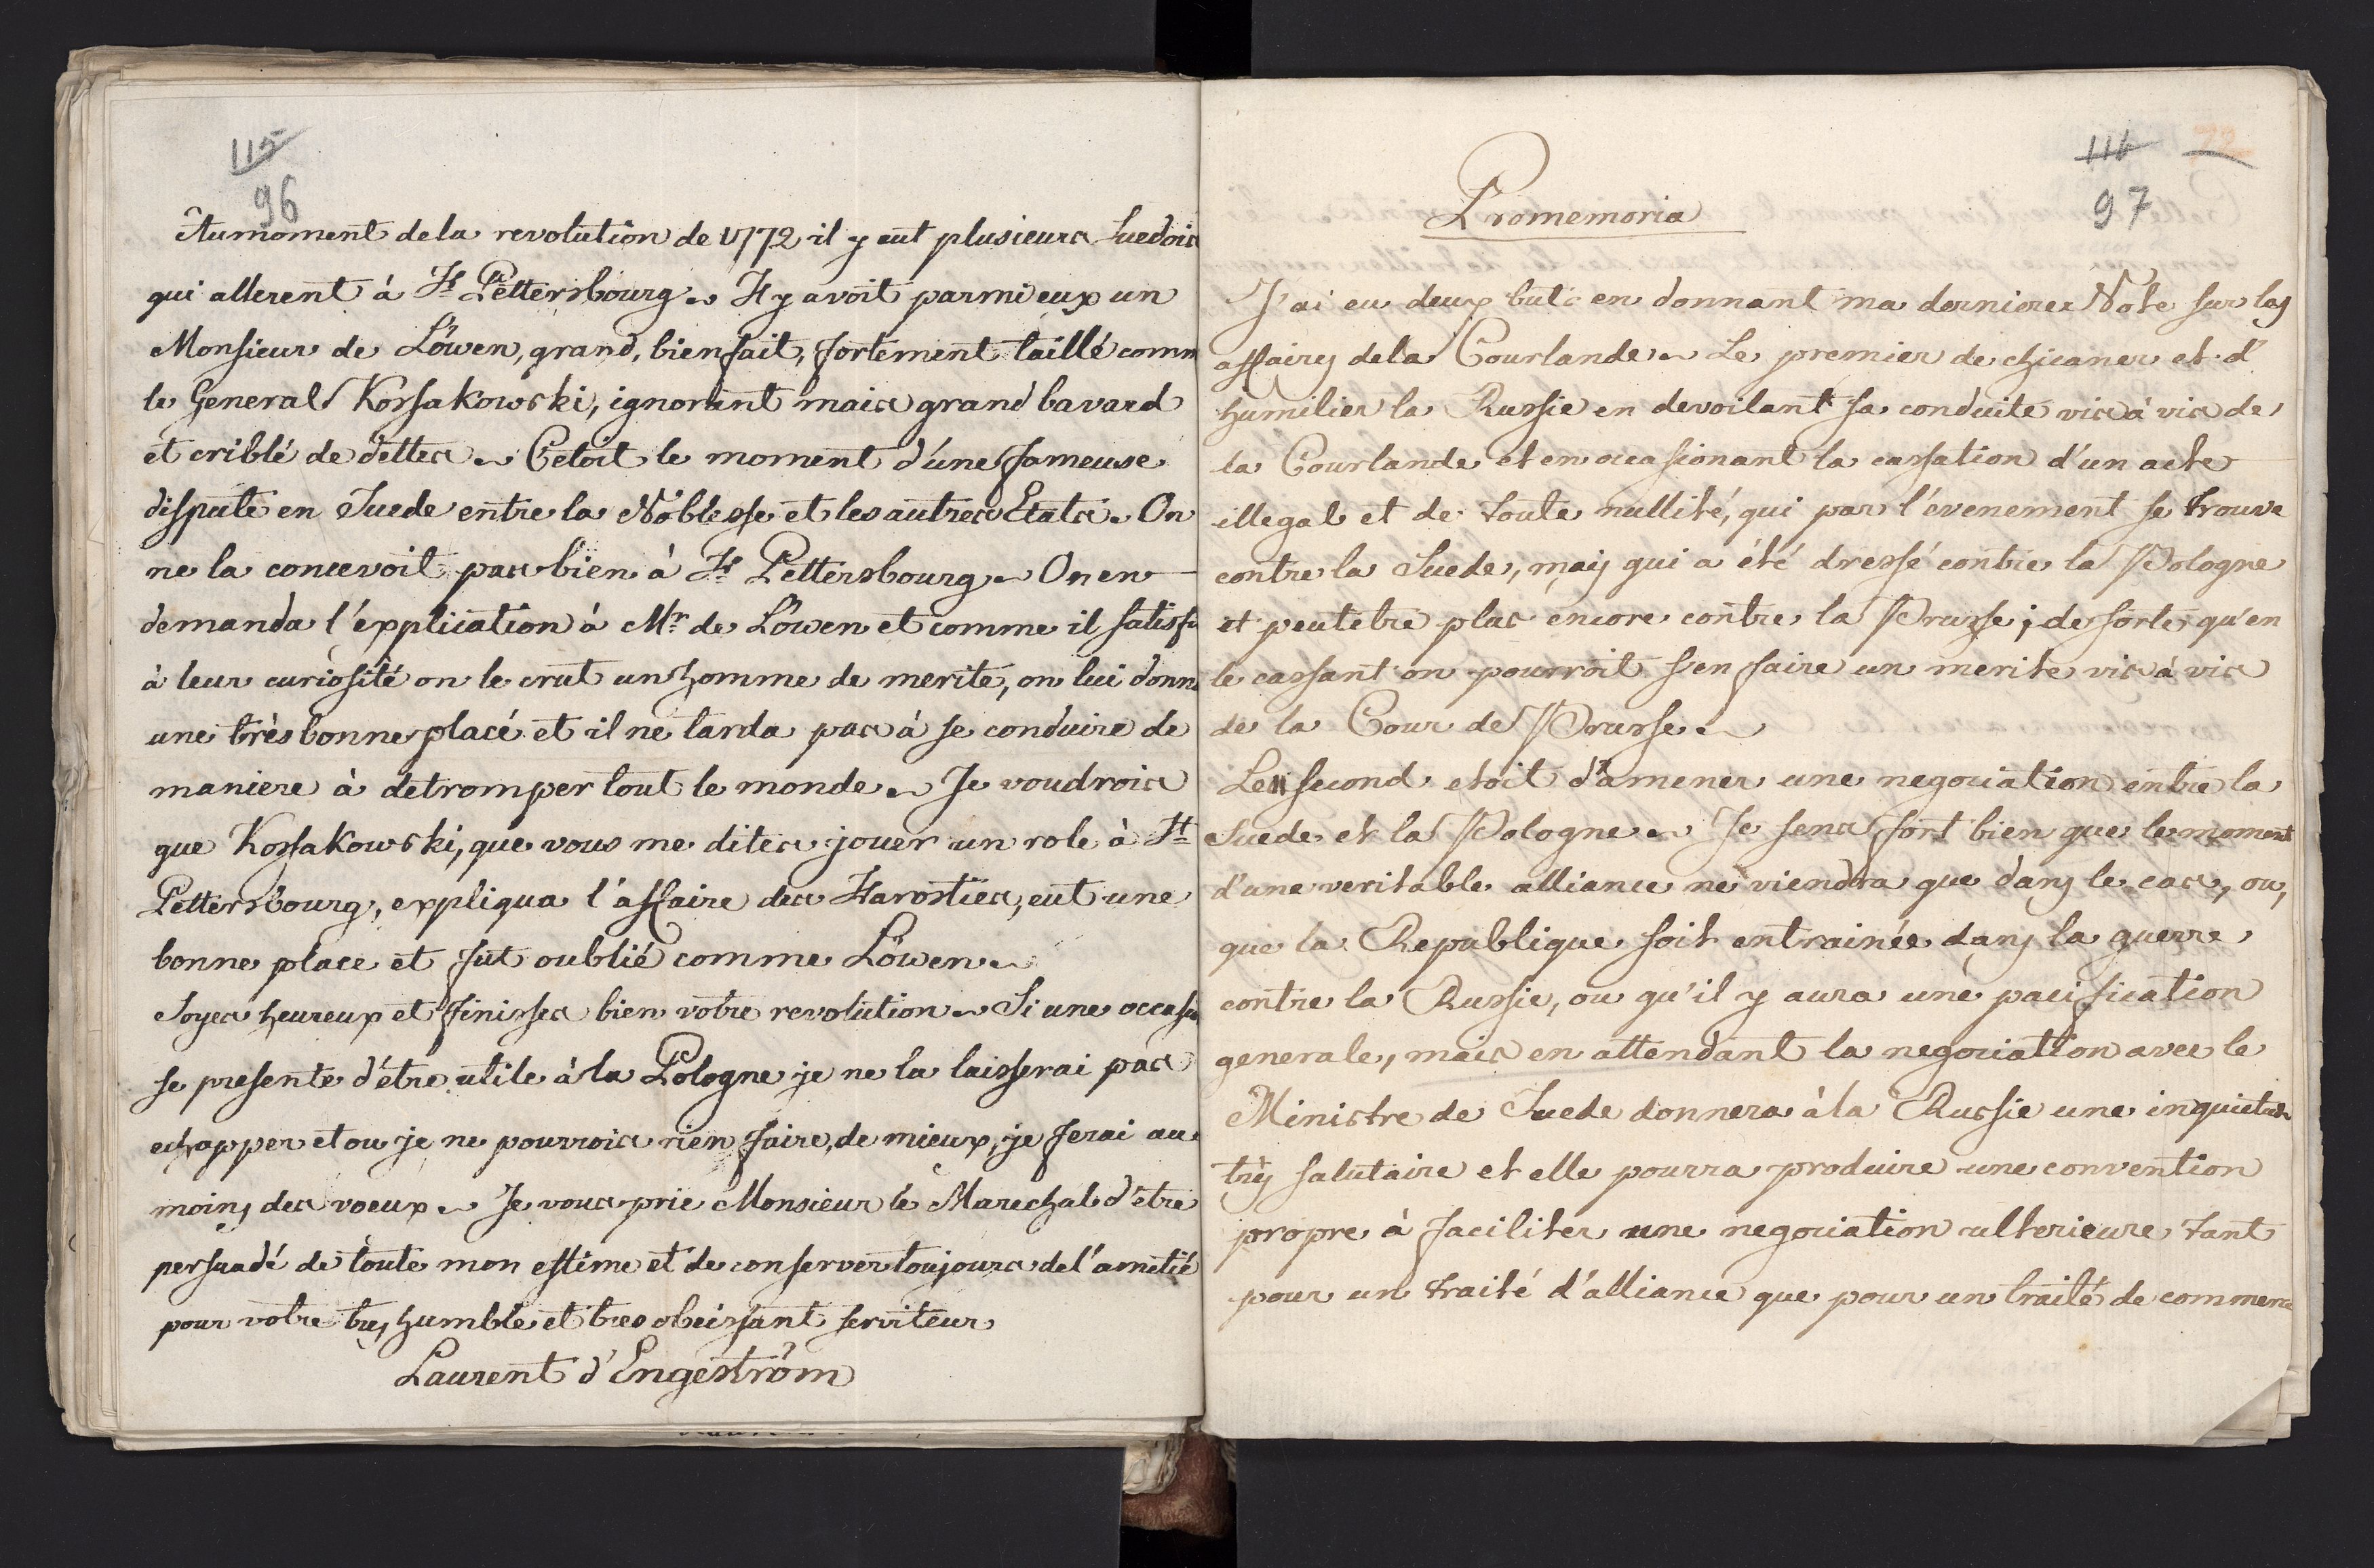 115
96
Au moment de la revolution de 1772 il y eut plusieurs Suedois
qui allerent à St Pettersbourg. Il y avoit parmi eux un
Monsieur de Löwen, grand, bien fait, fortement taillé comm
le General Kossakowski, ignorant mais grand bavard
et criblé de dettes. C'etoit le moment d'une fameuse
dispute en Suede entre la Noblesse et les autres Etats. On
ne la concevoit pas bien à St Pettersbourg. On en
demanda l'éxplication à Mr de Löwen et comme il satisfi
à leur curiosité on le crut un homme de merite, on lui donn
une très bonne place et il ne tarda pas à se conduire de
maniere à detromper tout le monde. Je voudrois
que Kossakowski, que vous me dites jouer un role à St
Pettersbourg, expliqua l'affaire des Starosties, eut une
bonne place et fut oublié comme Löwen.
Soyez heureux et finissez bien votre revolution. Si une occasi
se presente d'être utile à la Pologne je ne la laisserai pas
echapper et ou je ne pourrois rien faire, de mieux, je ferai au
moins des voeux. Je vous prie Monsieur le Marechal d'etre
persuadé de toute mon estime et de conserver toujours de l'amitié
pour votre tres humble et tres obeissant serviteur
Laurent d'Engeström
116 72
97
Promemoria
J'ai eu deux buts en donnant ma derniere Note sur les
affaires de la Courlande. Le premier de chicaner et d'
humilier la Russie en devoilant sa conduite vis à vis de
la Courlande et en occasionant la cassation d'un acte
illegal et de toute nullité, qui par l'évenement se trouve
contre la Suede, mais qui a été dressé contre la Pologne
et peutetre plus encore contre la Prusse; de sorte qu'en
le cassant on pourroit s'en faire un merite vis à vis
de la Cour de Prusse.
Le second etoit d'amener une negociation entre la
Suede et la Pologne. Je sens fort bien que le moment
d'une veritable alliance ne viendra que dans le cas, ou,
que la Republique soit entrainée dans la guerre
contre la Russie, ou qu'il y aura une pacification
generale, mais en attendant la negociation avec le
Ministre de Suede donnera à la Russie une inquietude
très salutaire et elle pourra produire une convention
propre à faciliter une negociation ulterieure tant
pour un traité d'alliance que pour un traité de commerce